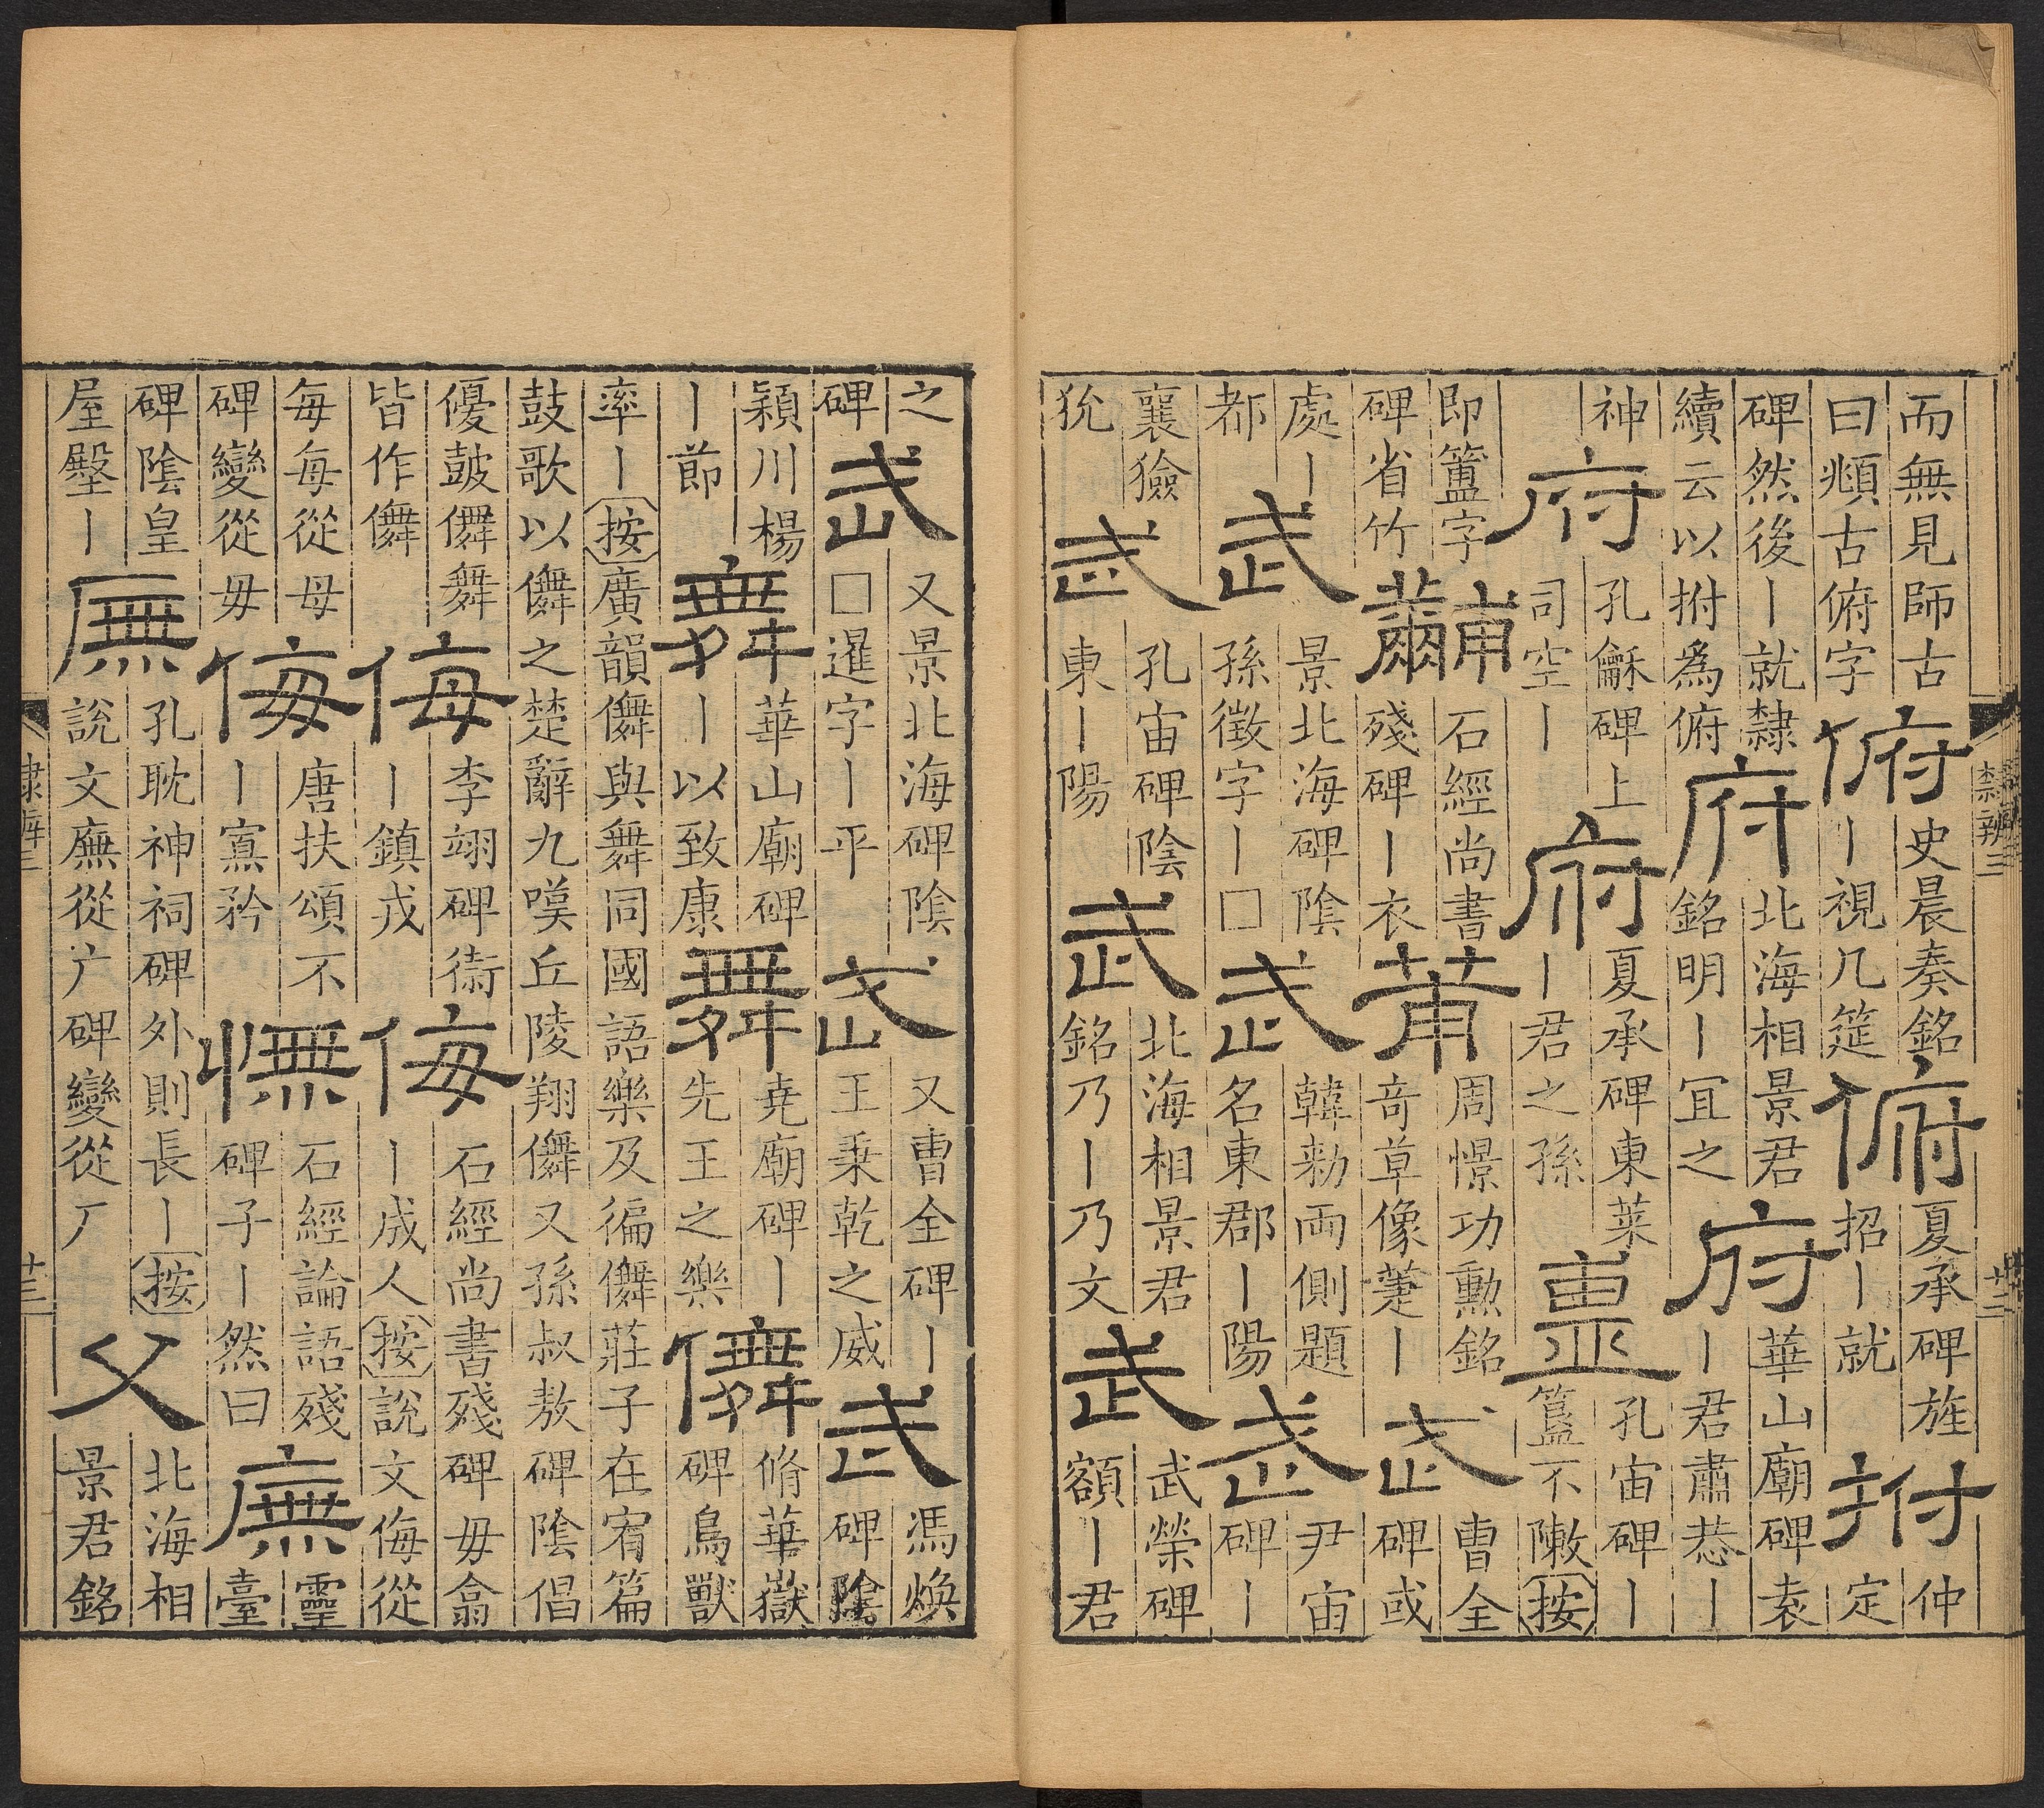 而無見師古曰頫古俯字俯史晨奏銘丨視几筵俯夏承碑旌招丨就拊仲定
碑然後丨就隸續云以拊爲俯府北海相景君銘明丨宜之府華山廟碑袁丨君肅恭丨
神府孔龢碑上司空丨府夏承碑東莱丨君之孫簠孔宙碑丨簋不敶按
即簠字碑省竹黼石經尚書殘碑丨衣莆周憬功勲銘竒草像萐丨武曹全碑或
處丨都武景北海碑陰孫徵字丨□武韓勑両側題名東郡丨陽武尹宙碑丨
襄獫狁武孔宙碑陰東丨陽武北海相景君銘乃丨乃文武武榮碑額丨君
隸辨三 廿二
之碑武又景北海碑陰□暹字丨平武又曹全碑丨王秉乾之威武馮煥碑陰
穎川楊丨節舞華山廟碑丨以致康舞尭廟碑丨先王之樂儛脩華嶽碑鳥獸
率丨按廣韻儛與舞同國語樂及徧儛莊子在宥篇
鼓歌以儛之楚辭九嘆丘陵翔儛又孫叔敖碑陰倡
優鼓儛舞皆作儛侮李翊碑衛丨鎮戎侮石經尚書殘碑毋翕丨成人按說文侮從
每每從母碑變從毋侮唐扶頌不丨寡矜憮石經論語殘碑子丨然曰廡靈臺
碑陰皇屋壂丨廡孔耽神祠碑外則長丨按說文廡從广碑變從厂父北海相景君銘
隸辨三 廿三